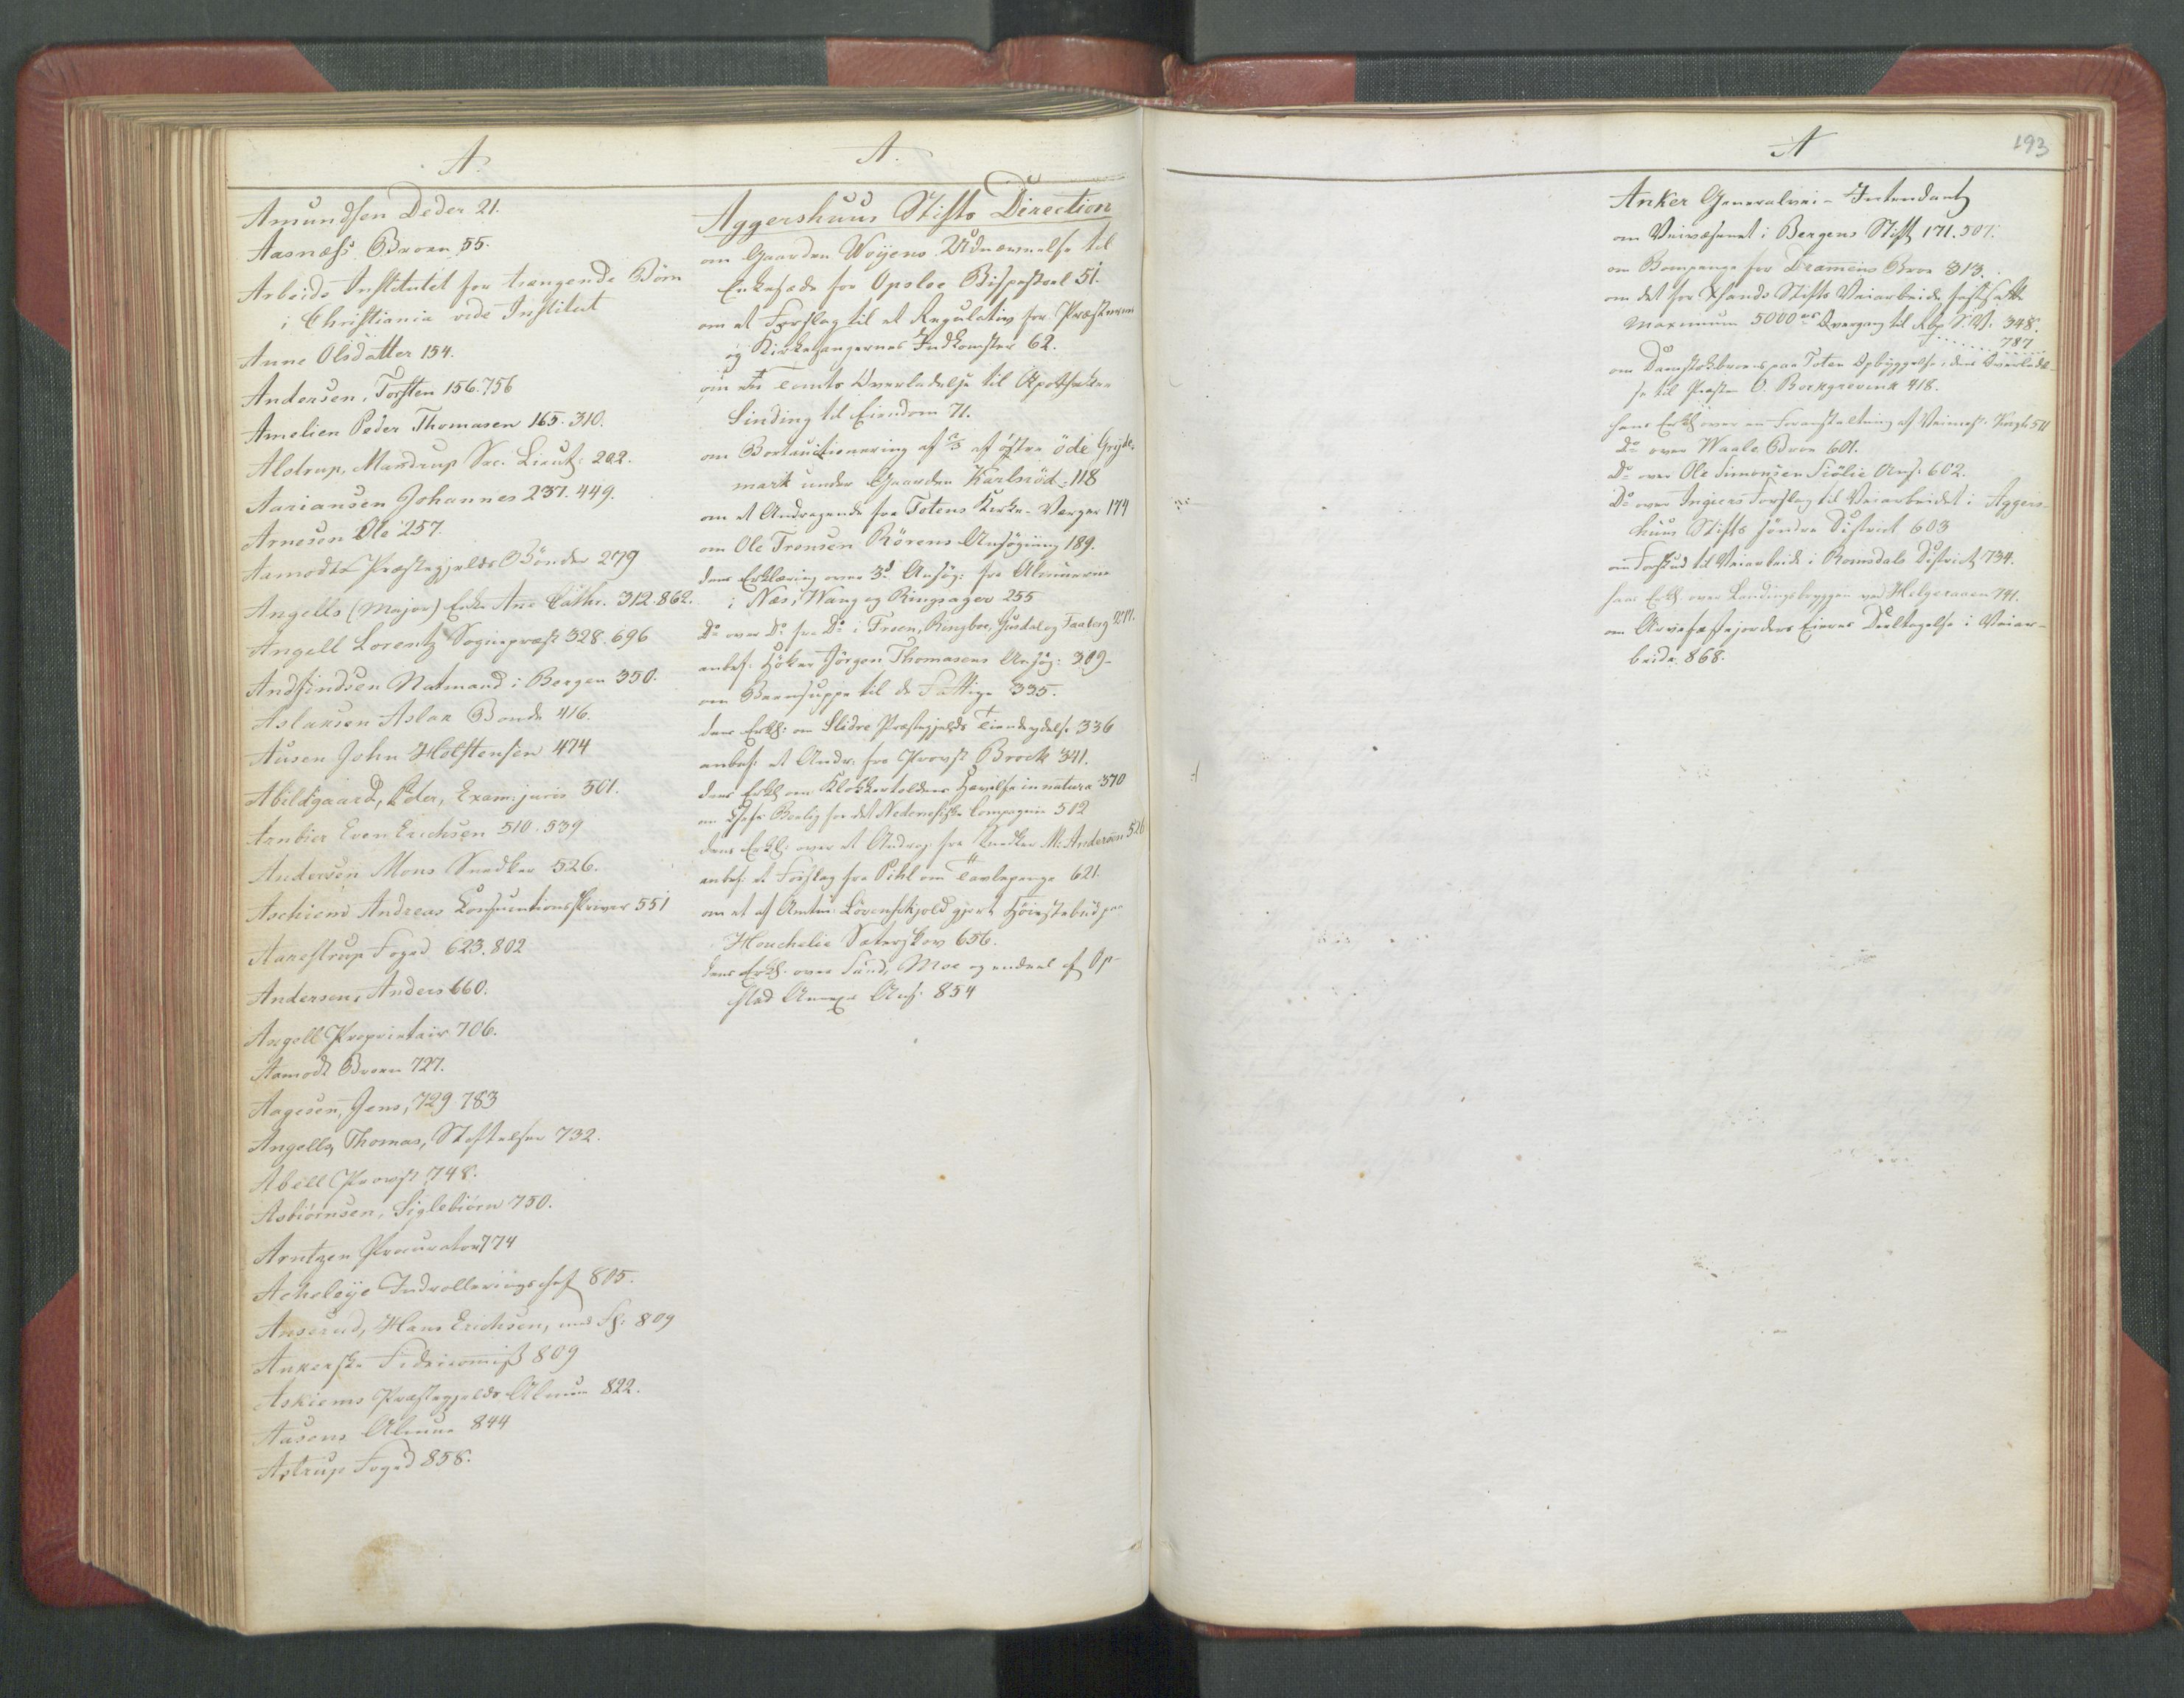 A.
Amundsen Peder 21.
Aasnæs Broen 55.
Arbeids Institutet for trængende Börn
i Christiania vide Institut
Anne Olsdatter 154.
Andersen, Torsten 156. 756
Amelien Peder Thomasen 165. 310.
Alstrup, Mandrup Sec. Lieut: 202.
Aariansen Johannes 237. 449.
Arnesen Ole 257.
Aamodts Præstegjelds Bönder 279
Angells (Major) Enke Ane Cathr. 312. 862.
Angell Lorentz Sognepræst 328. 696
Andfindsen Natmand i Bergen 350.
Aslaksen Aslak Bonde 416.
Ausen John Holstensen 474
Abildgaard, Peder, Exam: juris 501.
Arnbier Even Erichsen 510. 539
Andersen Mons Snedker 526.
Aschiem Andreas Consumtionsskriver 551
Aanestrup Foged 623. 802
Andersen, Anders 660.
Angell Proprietair 706.
Aamodt Broen 727.
Aagesen, Jens, 729 783
Angells Thomas, Stiftelser 732.
Abell Provst 748.
Asbiörnsen, Siglebiörn 750.
Arntzen Procurator 774
Acheleye Indrolleringschef 805.
Anserud, Hans Erichsen, med Fl: 809
Ankerske Fideicommiss 809
Askiems Præstegjelds Almue 822.
Aasens Almue 844
Astrup Foged 858.
A.
Aggershuus Stifts Direction
om Gaarden Woyens Udnævnelse til
Enkesæde for Opsloe Bispestoel 51.
om et Forslag til et Regulativ for Præsternes
og Kirkesangernes Indkomster 62.
om Tomts Overladelse til Apotheker
Sinding til Eiendom 71.
om Bortauctionering af af östre öde
mark under Gaarden Karlsröd 118
om et Andragende fra Totens Kirke-Værger 174
om Ole Trensen Rörens Ansögning 189.
dens Erklæring over 3de Ansög: fra Almuerne
i Næs, Wang og Ringsager 255
Do over Do fra Do i Froen, Ringboe, Gusdal og Faaberg 277.
anbef: Höker Jörgen Thomasens Ansög: 309.
om Beensuppe til de Fattige 335.
dens Erkl: om Slidre Præstegjelds Tiendeydelse 336
anbef: et Andr: fra Provst Brock 341.
dens Erkl om Klokkertoldens Hævelse in natura 370
om Bolig for det Nedenesiske Compagnie 502
dens Erkl: over et Andrag: fra Snedker M: Andersen 526
anbef: et Forslag fra Pihl om Tavlepenge 621.
om et af Amtm: Lövenskjold gjort Höiestebud paa
Houchelie Sæterskov 656.
dens Erkl: over Sund, Moe og endeel af Op-
stad Annexe Ans: 854
A
193
Anker Generalvei-Intendant
om Veivæsenet i Bergens Stift 171. 507.
om Bompenge for Dramens Broe 313.
om det for Xsands Stifts Veiarbeide fastsatte
Maximum 5000 Overgang til Rbp S.V. 348.
787
om Damstokbroens paa Toten Opbyggelse, dens Overladel-
se til Præsten O. Borchgrevink 418.
hans Erkl over en Foranstaltning af Veimest: Krogh 511
Do over Waale Broe 601.
Do over Ole Simonsen Siölie Ans: 602.
Do over Ingiers Forslag til Veiarbeidet i Aggers-
huus Stifts söndre District 603
om Forskud til Veiarbeide i Romsdals District 734.
hans Erkl. over Landingsbryggen ved Helgeraaen 741.
om Arvefæstejorders Eieres Deeltagelse i Veiar-
beide. 868.